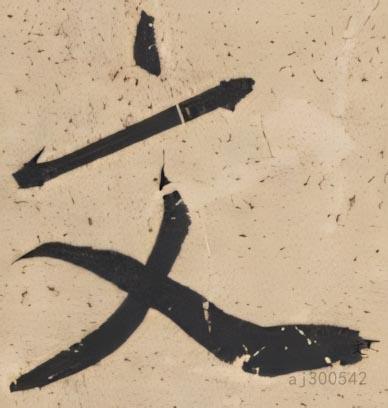 文
aj300542